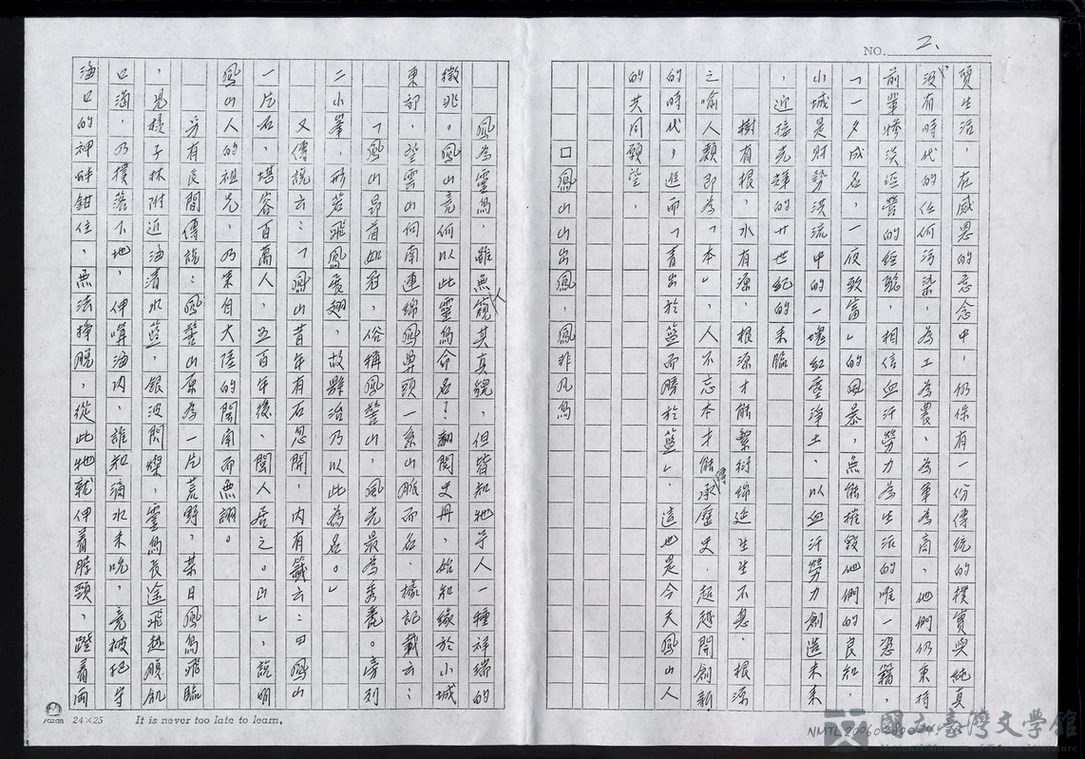 NO. 2.
質生活，在感恩的意念中，仍保有一份傳統的樸實與純真
沒有時代的任何污染，為工為農、為軍為商，他們仍秉持
前輩慘淡經營的經驗，相信血汗勞力為生活的唯一憑藉，
「一夕成名，一夜致富」的風暴，無能摧毀他們的良知，
小城是財勢洪流中的一塊紅塵淨土，以血汗勞力創造未來
，迎接光輝的廿世紀的來臨
樹有根，水有源，根源才能繫衍綿延生生不息，根源
之喻人類即為「本」，人不忘本才能承傳歷史，超越開創新
的時代，進而「青出於藍而勝於藍」，這也是今天鳳山人
的共同願望，
口鳳山山出鳳，鳳非凡鳥
鳳為靈鳥，雖無窺其真貌，但皆知牠予人一種祥瑞的
徵兆。鳳山竟何以此靈鳥命名？翻閱史冊，始知緣於小城
東郊，望雲山向南連綿鳳鼻頭一系山脈而名，據記載云：
「鳳山昂首如冠，俗稱鳳髻山，風光最為秀麗。旁列
二小峯，形若飛鳳展翅，故縣治乃以此為名。」
又傳說云：「鳳山昔年有石忽開，內有籤云：四鳳山
一片石，堪容百萬人，五百年後，閩人居之。山」，說明
鳳山人的祖先，乃來自大陸的閩南而無詡。
另有民間傳說：鳳髻山原為一片荒野，某日鳳鳥飛臨
，見樣子林附近海清水藍，銀波閃爍，靈鳥長途飛越頗飢
口渴，乃撲落下地，伸嘴海內，誰知滴水未吮，竟被把守
海口的神蚌鉗住，無法掙脫，從此牠就伸着脖頸，蹬着兩
24×25
It is never too late to learn.
NMTL20060280024
國立臺灣文學館
National Museum of Taiwan Literature